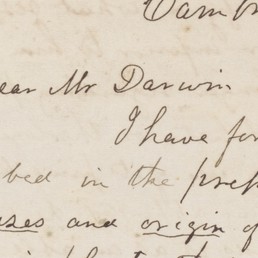 Camb
ear Mr Darwin
I have for
bed in the pref
uses and origin of